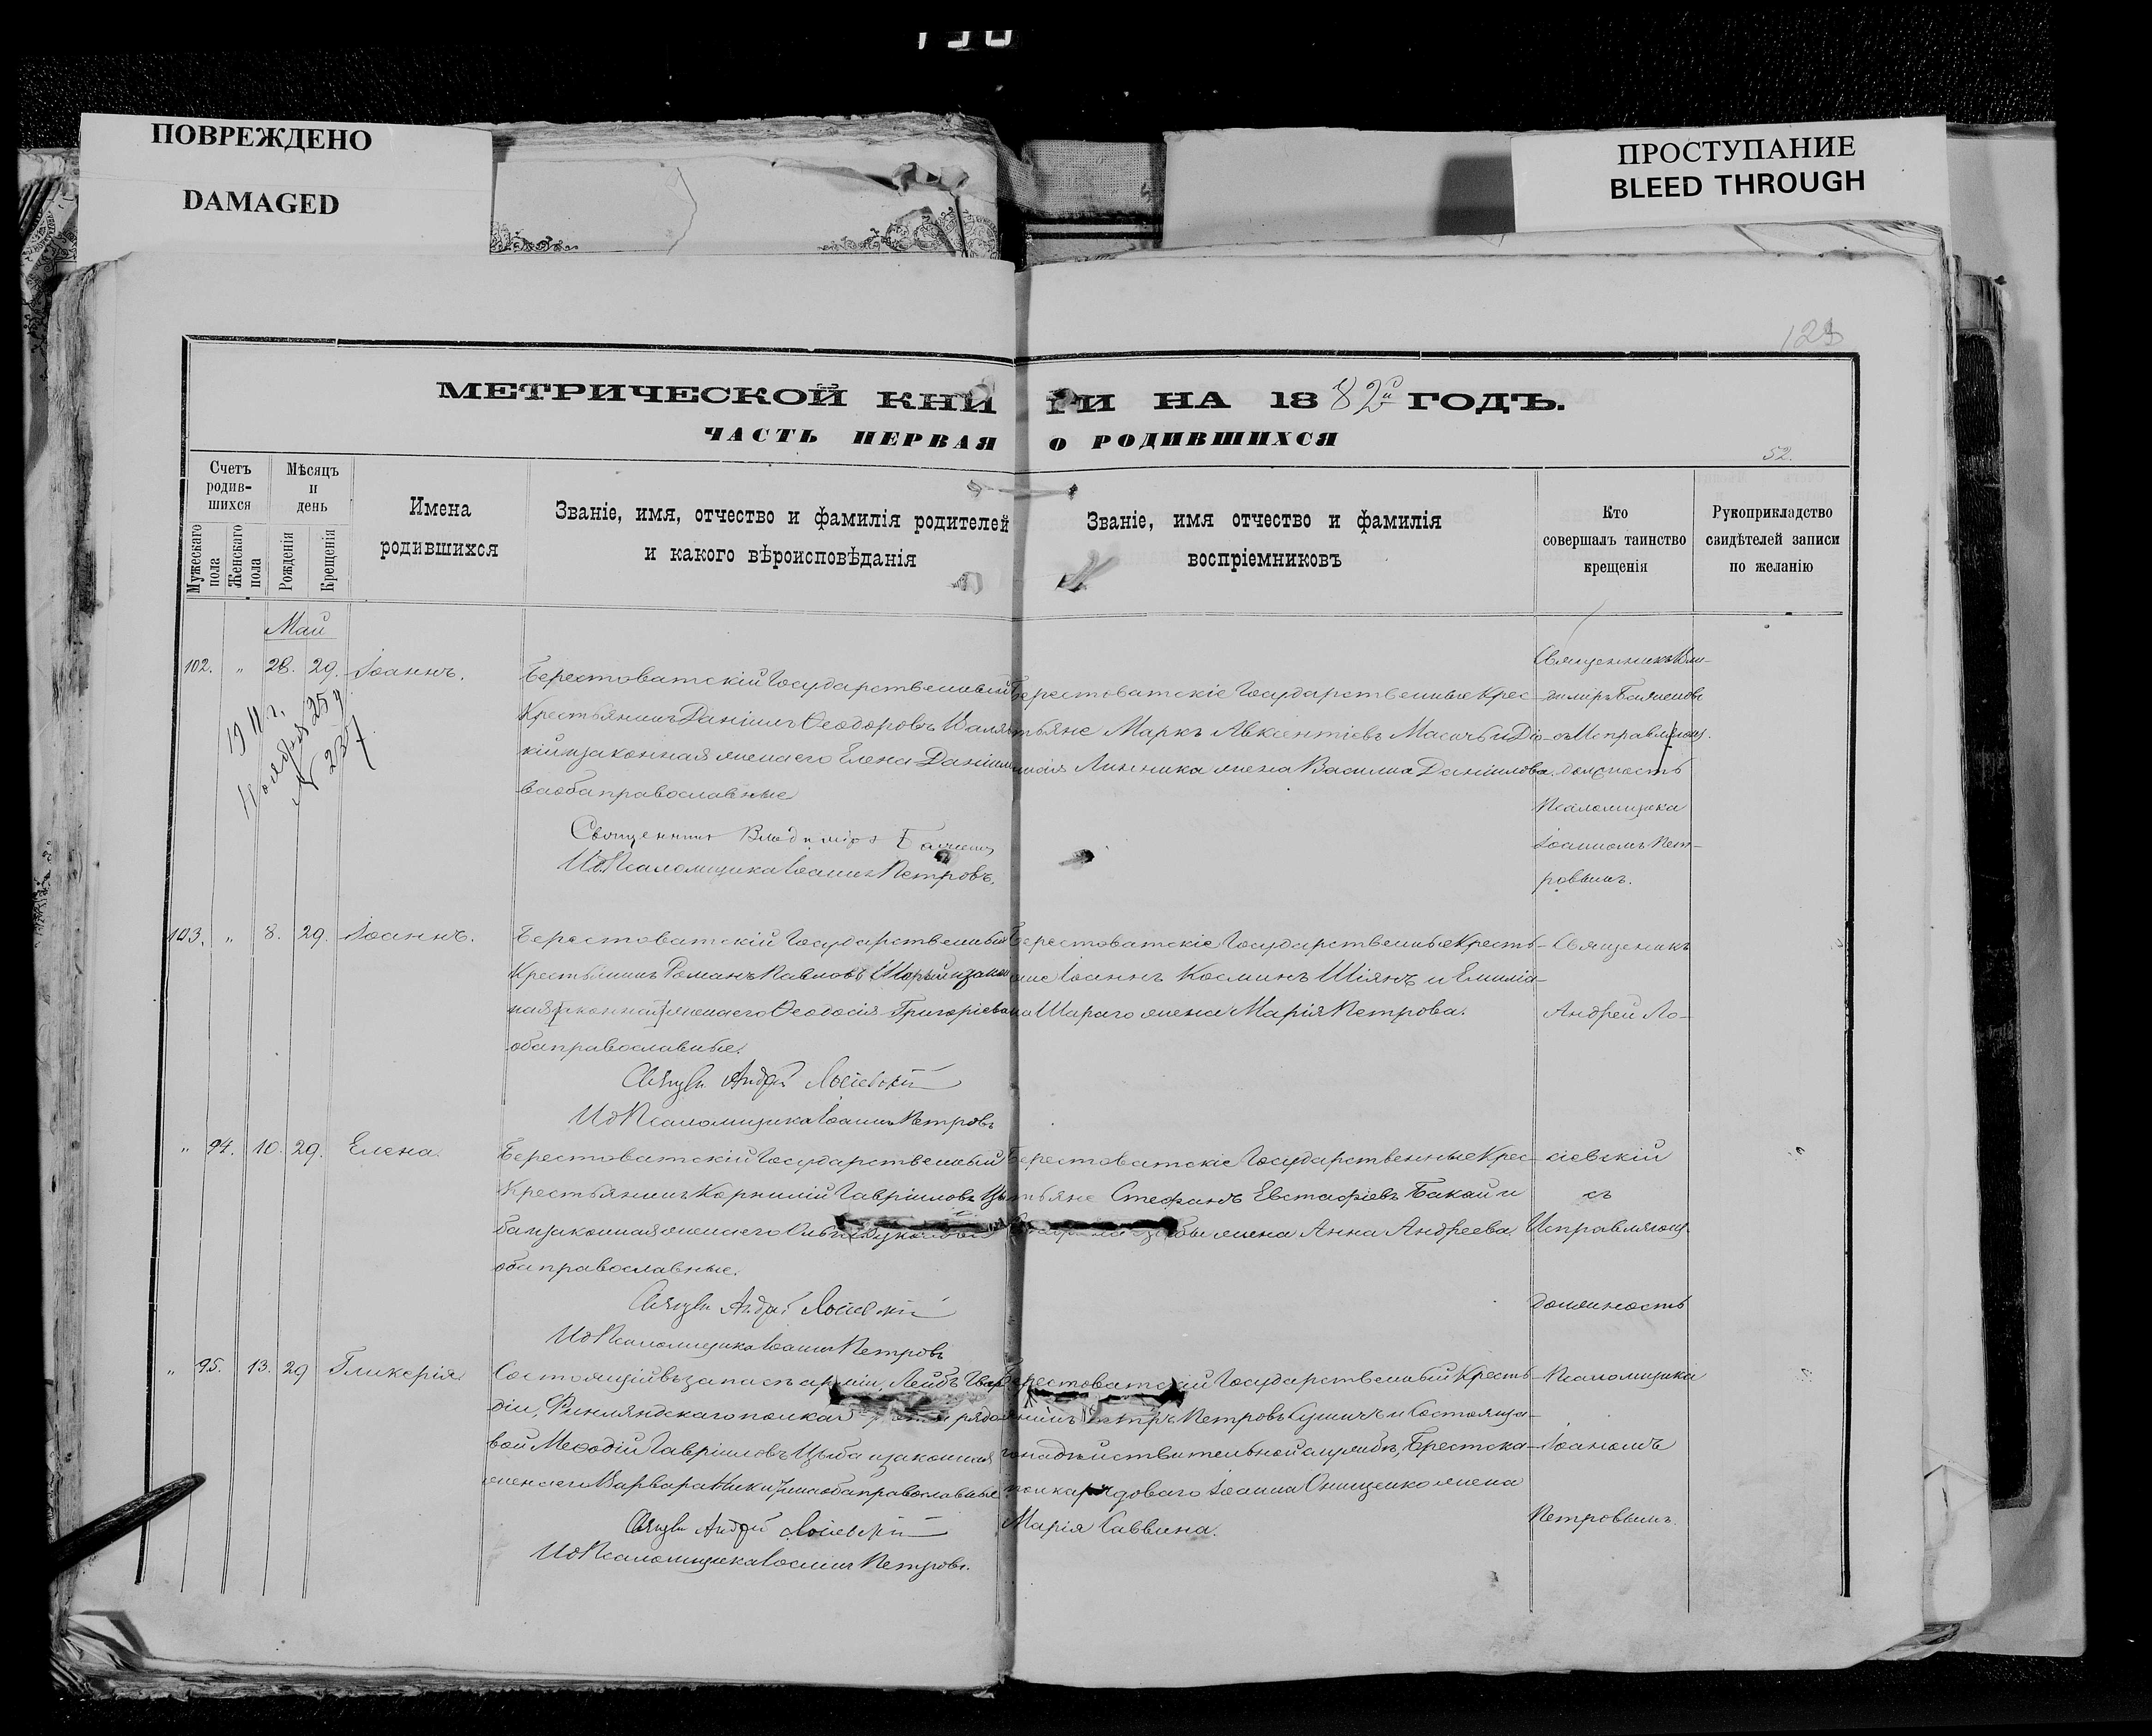 ПОВРЕЖДЕНО
DAMAGED
ПРОСТУПАНИЕ
BLEED THROUGH
МЕТРИЧЕСКОЙ КНИГИ НА 1882й ГОДЪ.
ЧАСТЬ ПЕРВАЯ О РОДИВШИХСЯ
52.
Счетъ родив-шихся
Мужескаго пола
Женскаго пола
Мѣсяцъ и день
Рожденія
Крещенія
Имена родившихся
Званіе, имя, отчество и фамилія родителей
и какого вѣроисповѣданія
Званіе, имя отчество и фамилія
воспріемниковъ
Кто
совершалъ таинство
крещенія
Рукоприкладство
свидѣтелей записи
по желанію
Май
102. " 28. 29. Іоаннъ.
1911 г.
Ноября 25 д
№ 237
Берестоватскій Государственный
Крестьянинъ Даніилъ Ѳеодоровъ
кій и законная жена его Елена Даніило
ва оба православные
Священникъ Владиміръ
И д. Псаломщика Іоаннъ Петровъ.
Берестоватскіе Государственные Крес-
тьяне Маркъ Авксентіевъ и
Линника жена Василиса Даніилова.
Священникъ Вла-
диміръ
съ Исправляющ.
должность
Псаломщика
Іоанномъ Пет-
ровымъ.
103. " 8. 29. Іоаннъ.
Берестоватскій Государственный
Крестьянинъ Романъ Павловъ Шарый и закон
ная жена его Ѳеодосія Григоріева
оба православные.
Священ Андрей Лосіевскій
И д Псаломщика Іоаннъ Петровъ
Берестоватскіе Государственные Кресть-
яне Іоаннъ Косминъ Шіянъ и Емиліа-
на Шараго жена Марія Петрова.
Священикъ
Андрей Ло-
" 94. 10. 29. Елена.
Берестоватскій Государственный
Крестьянинъ Корнилій Гавріиловъ Цы
ба и законная жена его
оба православные.
Священ Андрей Лосіевскій
И д Псаломщика Іоаннъ Петровъ
Берестоватскіе Государственные Крес-
тьяне Стефанъ Евстафіевъ Бакай и
Цыбы жена Анна Андреева.
сіевскій
съ
Исправляющ.
должность
" 95. 13. 29 Гликерія.
Состоящій въ запасѣ арміи, Лейбъ Гвар
діи, Финляндскаго полка рядо
вой Меѳодій Гавріиловъ Цыба и законная
жена его Варвара Никитина оба православные
Священ Андрей Лосіевскій
И д Псаломщика Іоаннъ Петровъ.
Берестоватскій Государственный Кресть-
янинъ Петръ Петровъ Сушичъ и Состояща-
го на дѣйствительной службѣ, Брестска-
полка рядоваго Іоанна Онищенко жена
Марія Саввина.
Псаломщика
Іоаномъ
Петровымъ.